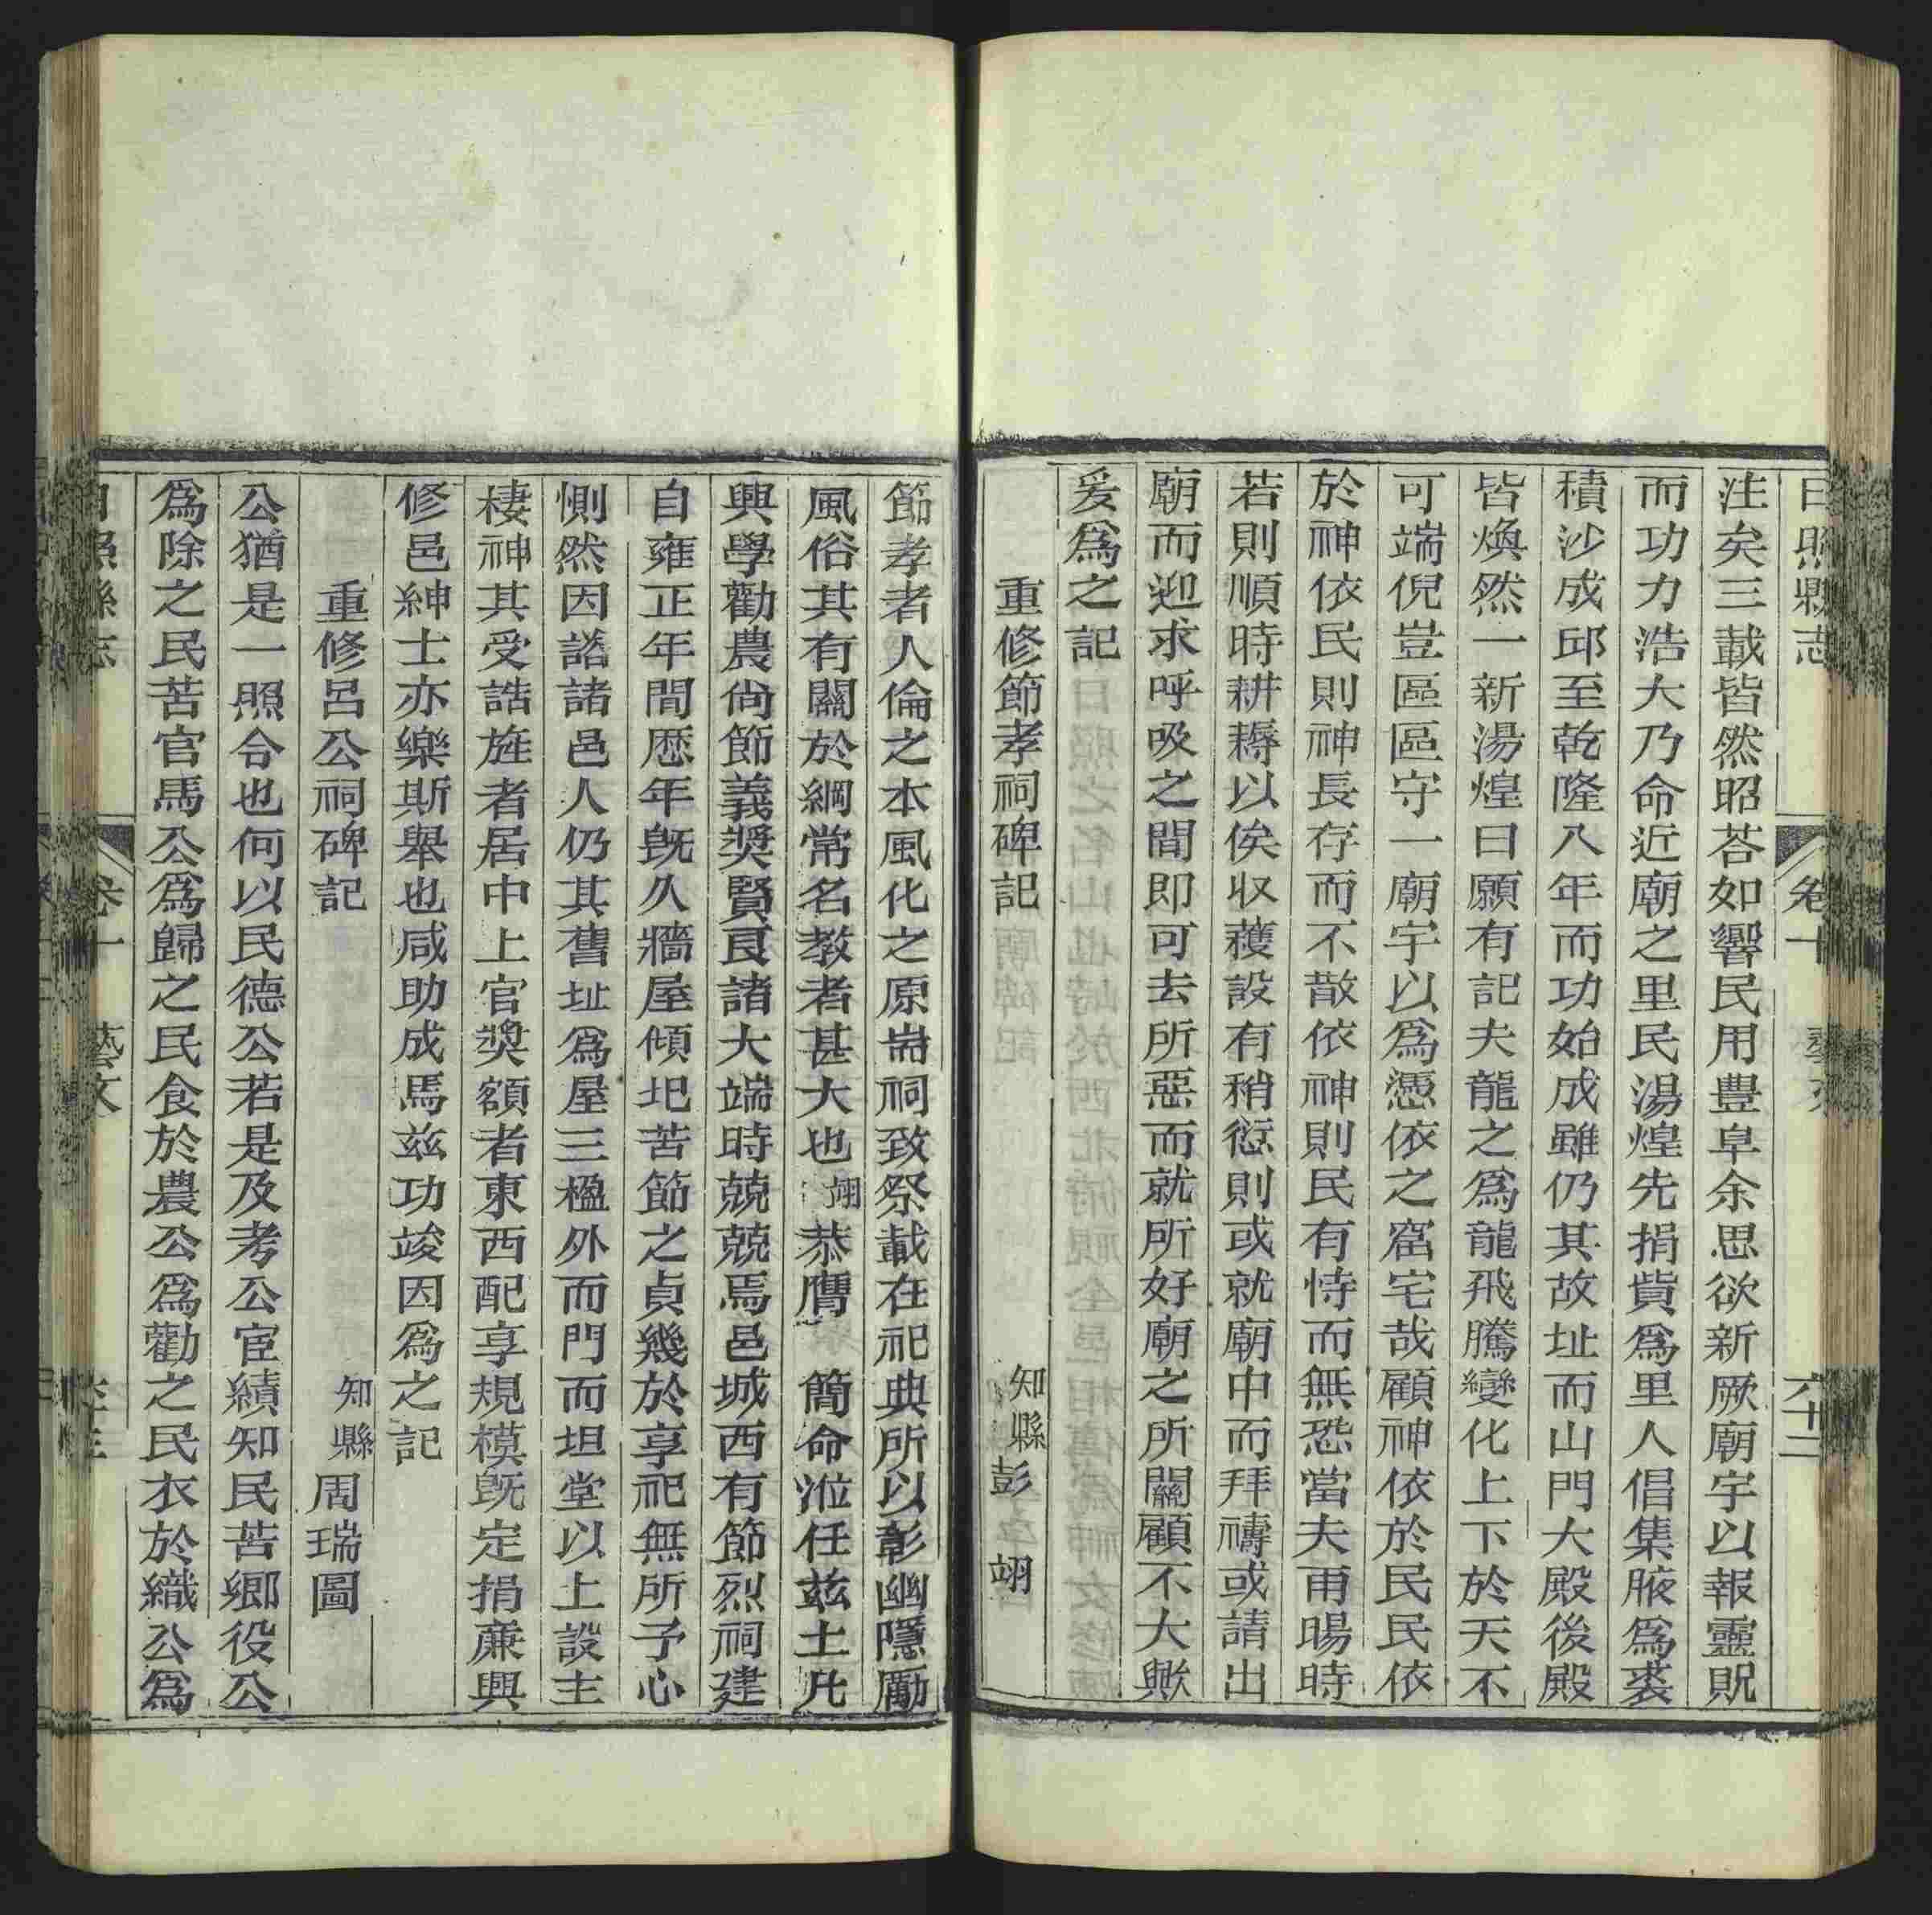 日照縣志 卷十 藝文 六十二
注矣三載皆然昭荅如響民用豊阜余思欲新厥廟宇以報靈貺
而功力浩大乃命近廟之里民湯煌先捐貲爲里人倡集腋爲裘
積沙成邱至乾隆八年而功始成雖仍其故址而山門大殿後殿
皆煥然一新湯煌曰願有記夫龍之爲龍飛騰變化上下於天不
可端倪豈區區守一廟宇以爲憑依之窟宅哉顧神依於民民依
於神依民則神長存而不散依神則民有恃而無恐當夫雨暘時
若則順時耕耨以俟収穫設有稍愆則或就廟中而拜禱或請出
廟而迎求呼吸之間即可去所惡而就所好廟之所關顧不大歟
爰爲之記
重修節孝祠碑記 知縣彭翊
節孝者人倫之本風化之原耑祠致祭載在祀典所以彰幽隱勵
風俗其有關於綱常名教者甚大也翊恭膺 簡命涖任兹土凡
興學勸農尙節義奬賢良諸大端時兢兢焉邑城西有節烈祠建
自雍正年間歴年旣久牆屋傾圯苦節之貞幾於享祀無所予心
惻然因諮諸邑人仍其舊址爲屋三楹外而門而坦堂以上設主
棲神其受誥旌者居中上官奬額者東西配享規模旣定捐廉興
修邑紳士亦樂斯舉也咸助成焉兹功竣因爲之記
重修呂公祠碑記 知縣周瑞圖
公猶是一照令也何以民德公若是及考公宦績知民苦鄉役公
爲除之民苦官馬公爲歸之民食於農公爲勸之民衣於織公爲
日照縣志 卷十 藝文